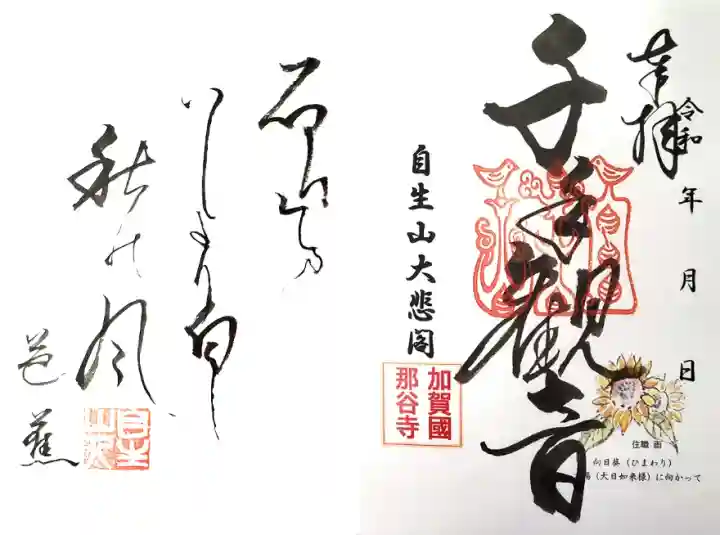 奉拝
令和　年　月　日
千手観音
自生山大悲閣
加賀國
那谷寺
住職 画
向日葵（ひまわり）
（大日如来様）に向かって
石山の
いしより白し
秋の風
芭蕉